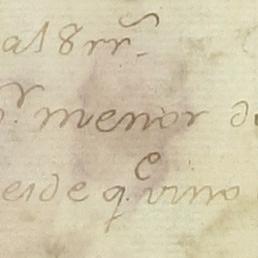 al 8 rr.
r. menor de
eide q.e vino